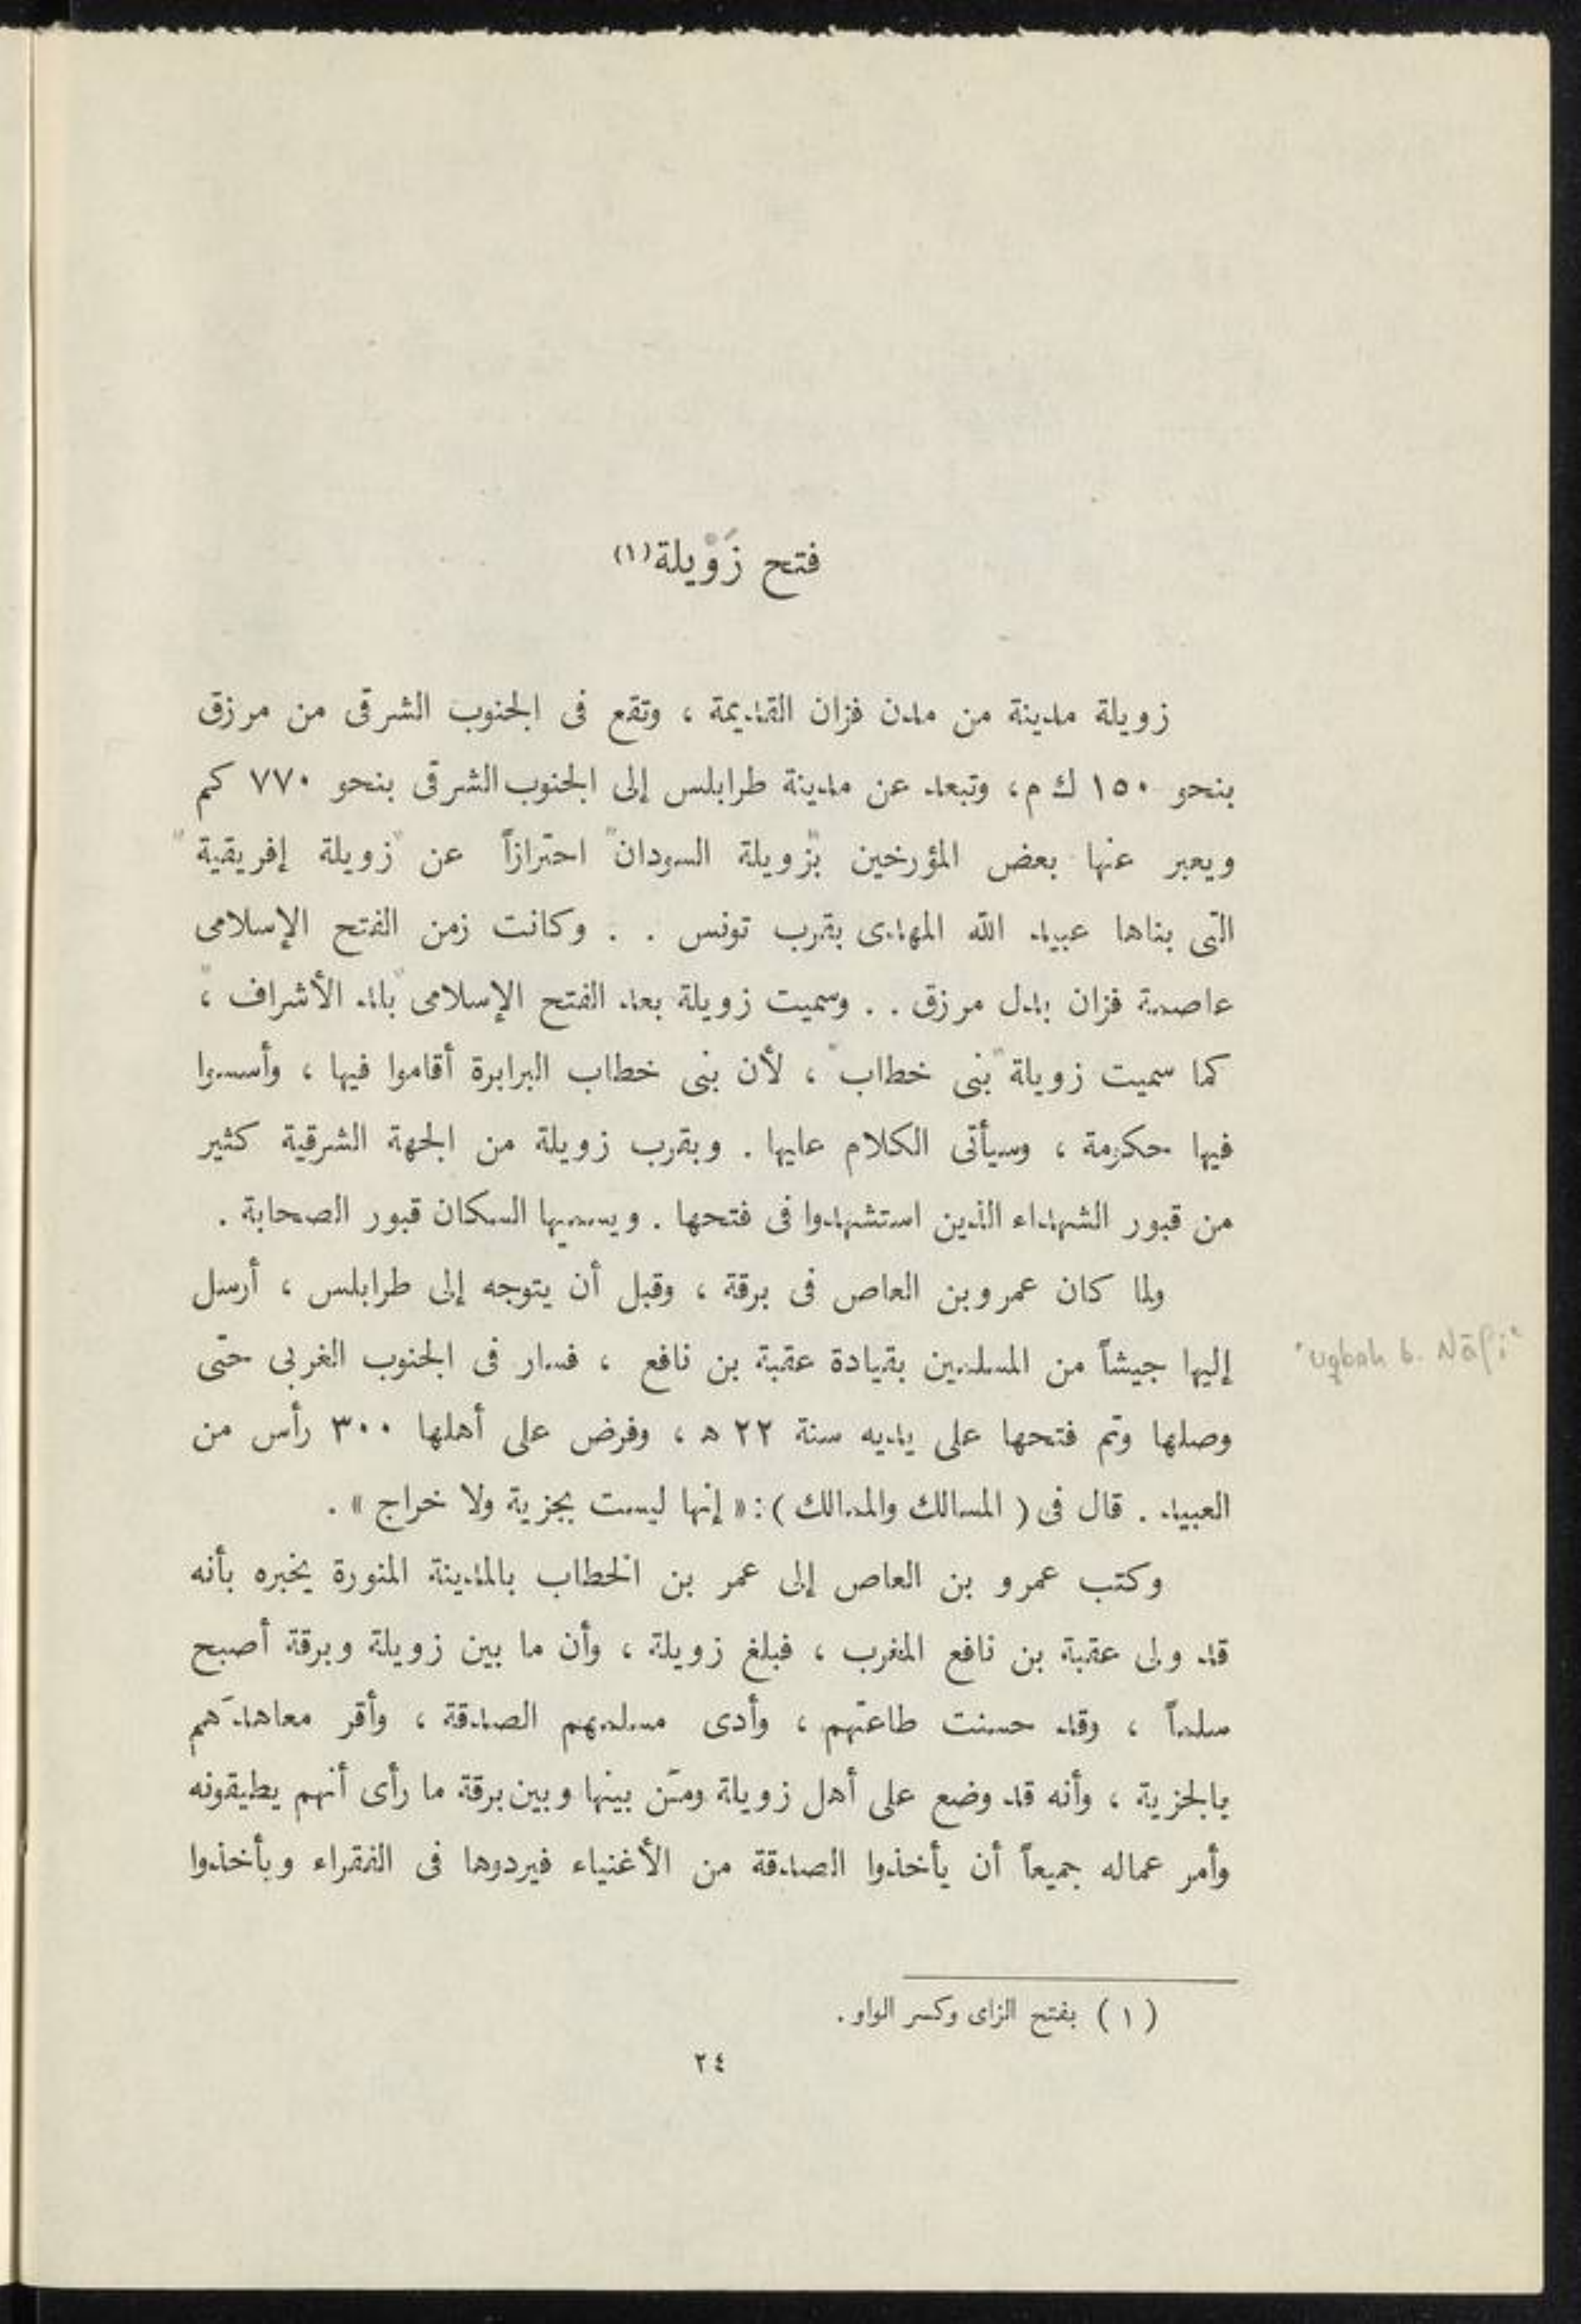 فتح زَوْيلة (١)
زويلة مدينة من مدن فزان القديمة ، وتقع فى الجنوب الشرقى من مرزق
بنحو ١٥٠ ك م ، وتبعد عن مدينة طرابلس إلى الجنوب الشرقى بنحو ٧٧٠ كم
ويعبر عنها بعض المؤرخين "بزويلة السودان" احترازاً عن "زويلة إفريقية"
التى بناها عبيد الله المهدى بقرب تونس . . وكانت زمن الفتح الإسلامى
عاصمة فزان بدل مرزق . . وسميت زويلة بعد الفتح الإسلامى "بلد الأشراف" ،
كما سميت زويلة "بنى خطاب" ، لأن بنى خطاب البرابرة أقاموا فيها ، وأسسوا
فيها حكومة ، وسيأتى الكلام عليها . وبقرب زويلة من الجهة الشرقية كثير
من قبور الشهداء الذين استشهدوا فى فتحها . ويسميها السكان قبور الصحابة .
ولما كان عمرو بن العاص فى برقة ، وقبل أن يتوجه إلى طرابلس ، أرسل
إليها جيشاً من المسلمين بقيادة عقبة بن نافع ، فسار فى الجنوب الغربى حتى
'uqbah b. Nāfi'
وصلها وتم فتحها على يديه سنة ٢٢ ه ، وفرض على أهلها ٣٠٠ رأس من
العبيد . قال فى ( المسالك والممالك ) : « إنها ليست بجزية ولا خراج » .
وكتب عمرو بن العاص إلى عمر بن الخطاب بالمدينة المنورة يخبره بأنه
قد ولى عقبة بن نافع المغرب ، فبلغ زويلة ، وأن ما بين زويلة وبرقة أصبح
سلماً ، وقد حسنت طاعتهم ، وأدى مسلمهم الصدقة ، وأقر معاهدَهم
بالجزية ، وأنه قد وضع على أهل زويلة ومَن بينها وبين برقة ما رأى أنهم يطيقونه
وأمر عماله جميعاً أن يأخذوا الصدقة من الأغنياء فيردوها فى الفقراء ويأخذوا
( ١ ) بفتح الزاى وكسر الواو .
٢٤